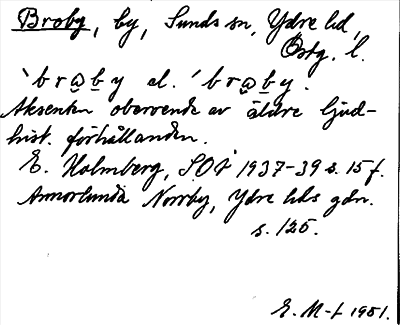 Broby, by, Sunds sn, Ydre hd,
Östg. l.
`bra̲b̲y el. ´bra̲b̲y.
Aksenten oberoende av äldre ljud-
hist. förhållanden.
E. Holmberg, SOÅ 1937-39 s. 15 f.
Annorlunda Norrby, Ydre hds gdn.
s. 125.
E. M-t 1951.